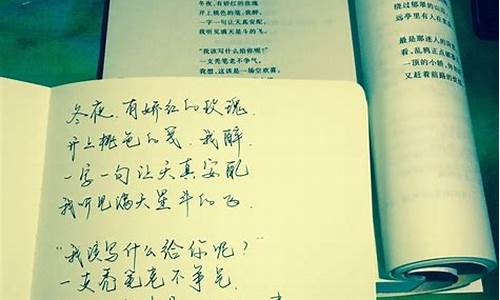 冬夜,有娇红的玫瑰
开上桃色的笺,我醉,
一字一句让天真安配,
我听见满天星斗的飞。
“我该写什么给你呢?”
一支秃笔老不争气,
我想,这该是一场空欢喜。
绕过郁翠的山
远亭里有人在
最是那迷人的
看,乱鸦正点
一顶的小轿,
又赶着前路的
冬夜.有娇红的玫瑰.
开上桃色的笺.我醉.
一字一句让天真安配
我听见满天星斗的飞.
“我该写什么给你呢?”
一支秃笔老不争气.